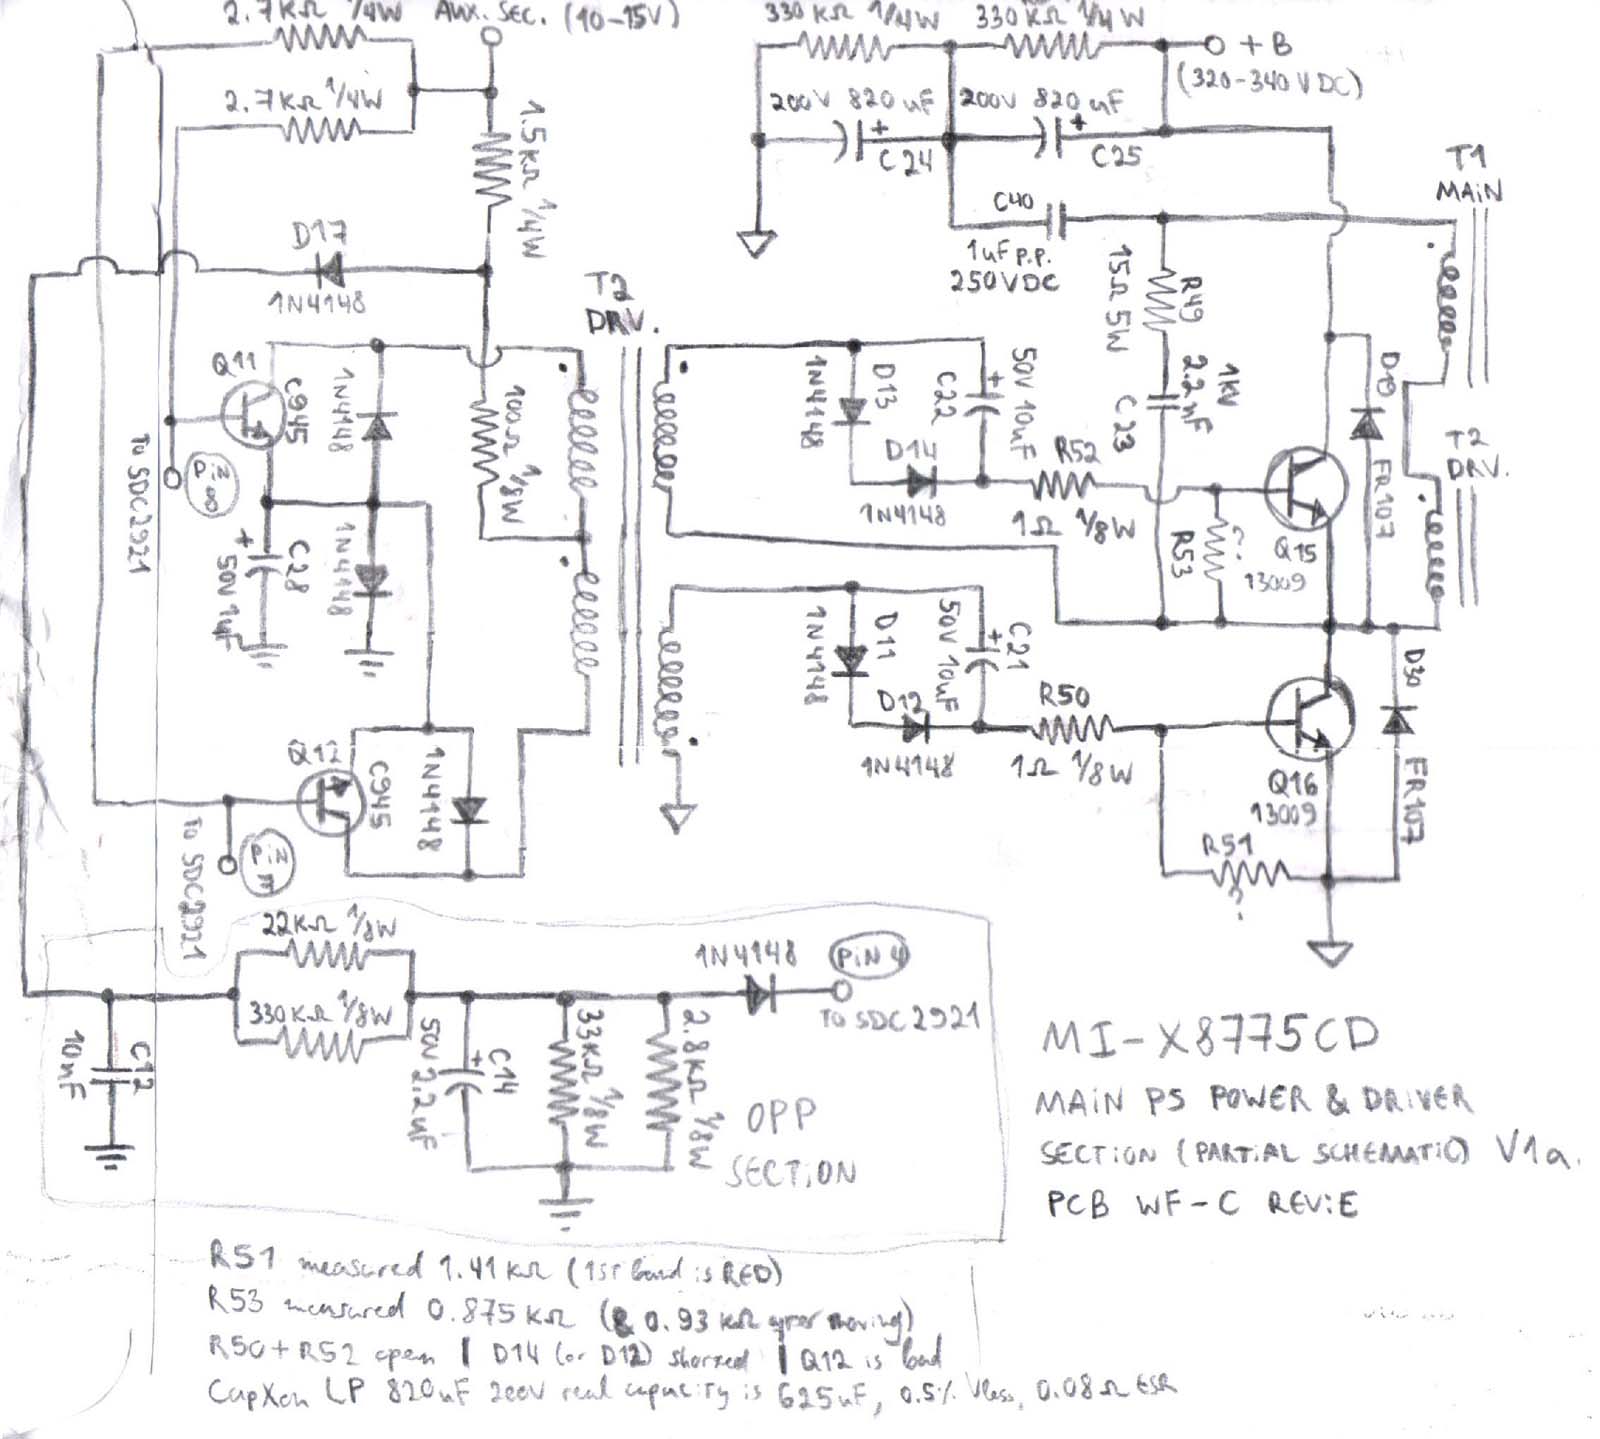 2.7KΩ 1/4W
AUX. SEC. (10-15V)
330KΩ 1/4W
330KΩ 1/4W
+B
(320-340VDC)
2.7KΩ 1/4W
1.5KΩ 1/4W
200V 820uF
200V 820uF
C24
C25
T1
MAiN
C40
1uF P.P.
250VDC
D17
1N4148
T2
DRV.
R49
15Ω 5W
Q11
C945
1N4148
100Ω 1/8W
1N4148
D13
C22
50V 10uF
1KV
2.2nF
C23
D10
FR107
T2
DRV.
TO SDC2921
PiN
8
D14
1N4148
R52
1Ω 1/8W
R53
?
Q15
13009
C28
50V 1uF
1N4148
1N4148
D11
50V 10uF
C21
D12
1N4148
R50
1Ω 1/8W
D30
FR107
Q16
13009
Q12
C945
1N4148
TO SDC2921
PiN
R51
?
22KΩ 1/8W
330KΩ 1/8W
1N4148
PiN 4
TO SDC2921
C12
10nF
50V 2.2uF
C14
33KΩ 1/8W
2.8KΩ 1/8W
OPP
SECTiON
MI-X8775CD
MAiN PS POWER & DRiVER
SECTiON (PARTiAL SCHEMATiC) V1a.
PCB WF-C REV:E
R51 measured 1.41KΩ (1ST band is RED)
R53 measured 0.875KΩ (& 0.93KΩ after moving)
R50+R52 open | D14 (or D12) shorted | Q12 is bad
CapXon LP 820uF 200V real capacity is 625uF, 0.5% Vloss, 0.08Ω ESR